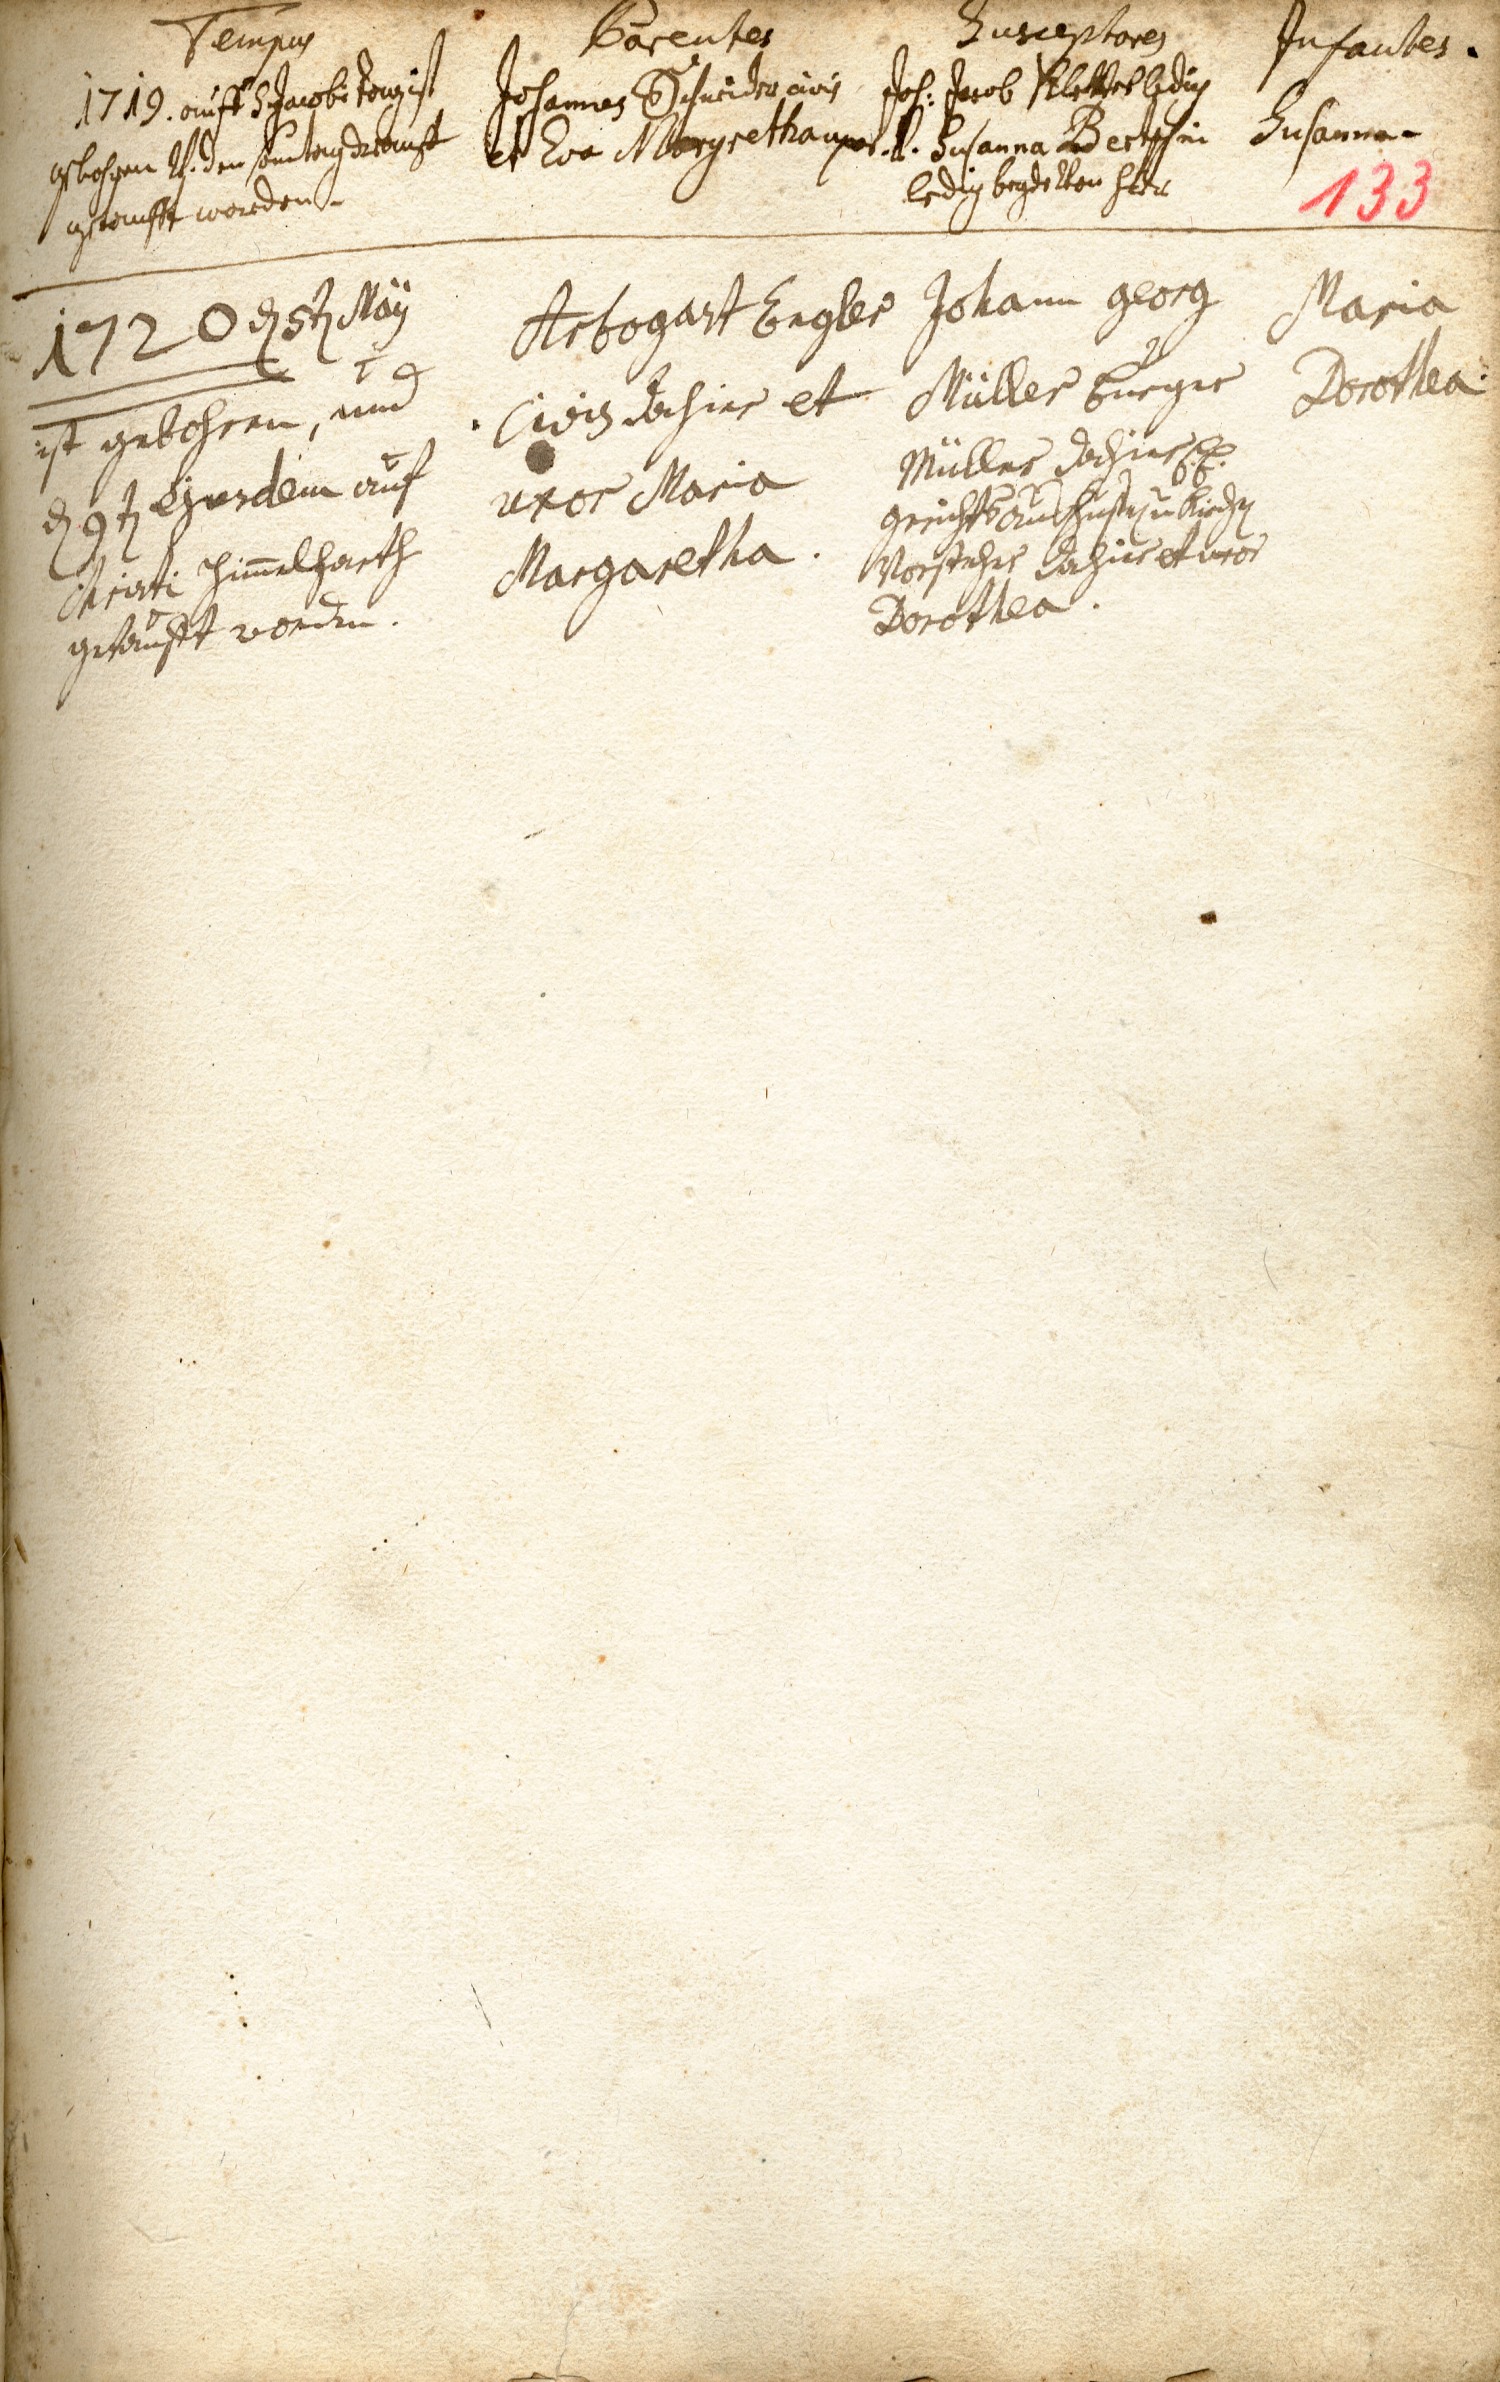 Tempus
Parentes
Susceptores
Infantes.
1719. auf S. Jacobi tag ist
gebohren u. den Sontag drauf
getaufft worden.
Johannes Schneider civis
et Eva Margretha uxor.
Joh: Jacob Kletter ledig
u. Susanna
ledig beyde von hier
Susanna
133
1720 d. 5t. Maÿ
ist gebohren, und
d. 9t. ejusdem auf
Christi Himmelfarth
getaufft worden.
Arbogast Engler
Civis dahier et
uxor Maria
Margaretha.
Johann Georg
Müller burger
Müller dahier
Gerichts und Kirch
Vorsteher dahier et uxor
Dorothea.
Maria
Dorothea.